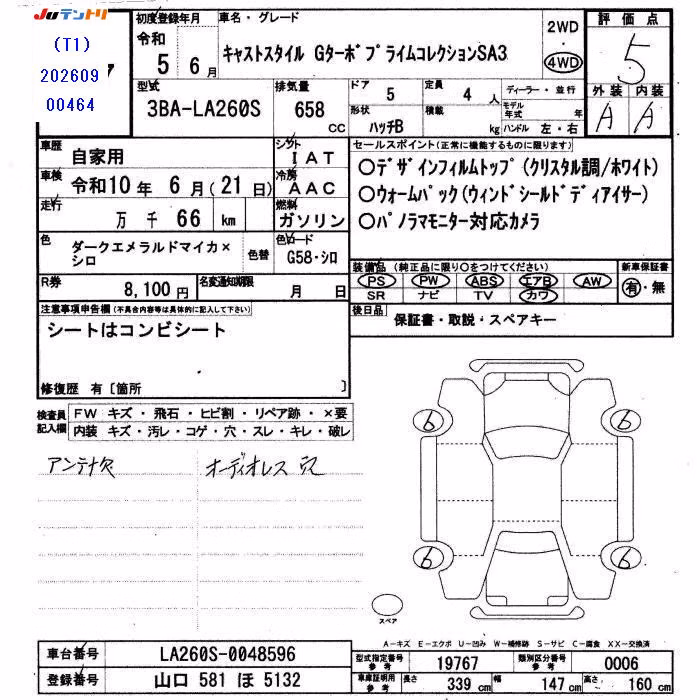 JUテントリ
(T1)
202609
00464
初度登録年月
令和
5 6月
車名・グレード
キャストスタイル Gターボプライムコレクション SA3
2WD
4WD
評価点
5
外装 内装
A A
型式
3BA-LA260S
排気量
658
CC
ドア 5
定員 4 人
形状 ハッチB
積載 kg
ディーラー・並行
モデル年式 年
ハンドル 左・右
車歴 自家用
シフト IAT
車検 令和10年 6月(21日)
冷房 AAC
走行 万 千 66 km
燃料 ガソリン
色 ダークエメラルドマイカ×シロ
色替
色コード G58・シロ
R券 8,100円
名変通知期限 月 日
セールスポイント(正常に機能するものに限ります)
○デザインフィルムトップ(クリスタル調/ホワイト)
○ウォームパック(ウィンドシールドディアイサー)
○パノラマモニター対応カメラ
装備品 (純正品に限り○をつけてください)
PS PW ABS エアB AW
SR ナビ TV カワ
新車保証書
有・無
後日品 保証書・取説・スペアキー
注意事項申告欄(不具合内容等は具体的に記入して下さい)
シートはコンビシート
修復歴 有〔箇所 〕
検査員記入欄
FW キズ・飛石・ヒビ割・リペア跡・×要
内装 キズ・汚レ・コゲ・穴・スレ・キレ・破レ
アンテナ欠
オーディオレス 穴
6 6
6 6
スペア
A−キズ E−エクボ U−凹み W−補修跡 S−サビ C−腐食 XX−交換済
車台番号 LA260S-0048596
登録番号 山口 581 ほ 5132
型式指定番号 参考 19767
類別区分番号 参考 0006
車庫証明用 参考 長さ 339 cm 幅 147 cm 高さ 160 cm